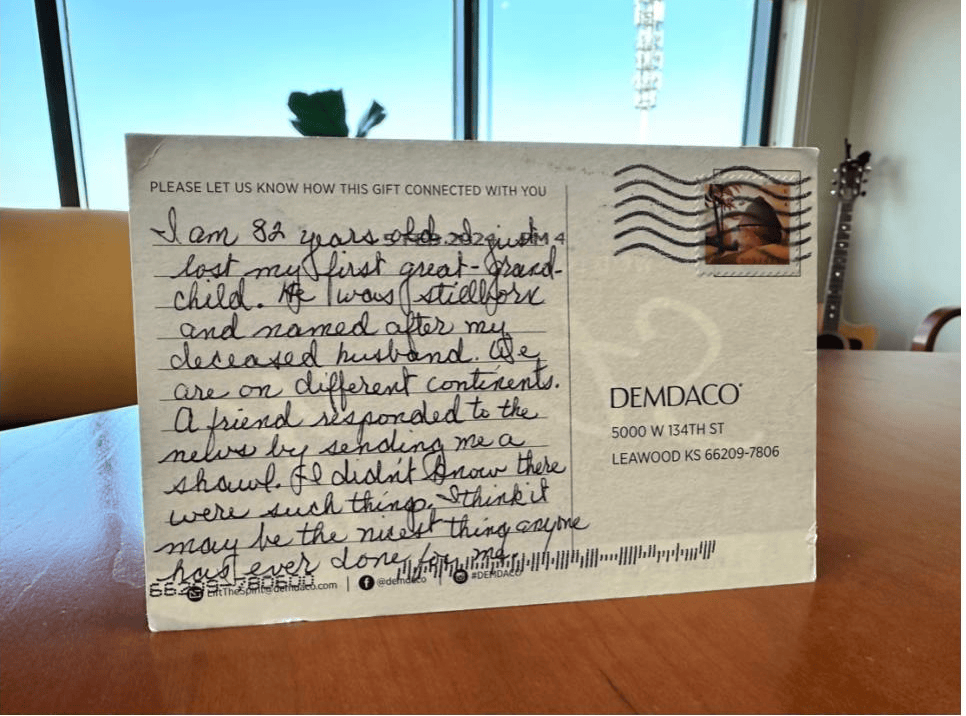 PLEASE LET US KNOW HOW THIS GIFT CONNECTED WITH YOU
I am 82 years old. I just
lost my first great-grand-
child. He was stillborn
and named after my
deceased husband. We
are on different continents.
A friend responded to the
news by sending me a
shawl. I didn't know there
were such things. I think it
may be the nicest thing anyone
has ever done for me.
LiftTheSpirit@demdaco.com | @demdaco #DEMDACO
DEMDACO
5000 W 134TH ST
LEAWOOD KS 66209-7806